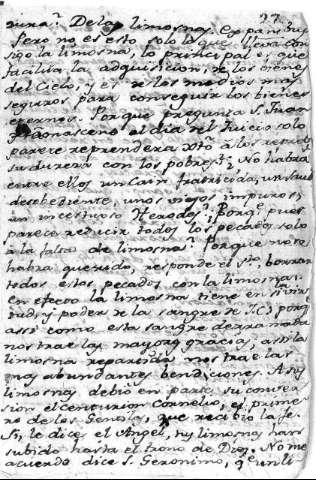 27.
De las limosnas.
Pero no es esto solo lo que lleva con
sigo la limosna, lo principal es, que
facilita la adquisicion, de los bienes
del Cielo, y es de los medios mas
seguros para conseguir los bienes
eternos. Porque pregunta S. Juan
el dia del Juicio solo
parece reprendera
su dureza con los pobres? No habra
entre ellos un Cain fratricida, un Saul
desobediente, unos viejos impuros,
un incestuoso Herodes? Porq.e pues
parece reducir todos los pecados solo
à la falta de limosnas? Porque no se
habra querido, responde el S.to, borrar
todos estos pecados con la limosna:
en efecto la limosna tiene en si vir
tud, y poder de la sangre de J.C. porq.
asi como esta sangre derramada
nos trae las mayores gracias, asi la
limosna repartida nos trae las
mas abundantes bendiciones. A sus
limosnas debiò en parte su conver
sion el centurion Cornelio, el prime
ro de los Gentiles, que recibio la fe.
Si, le dice el Angel, tus limosnas han
subido hasta el trono de Dios. No me
acuerdo dice S. Geronimo, q.e un li